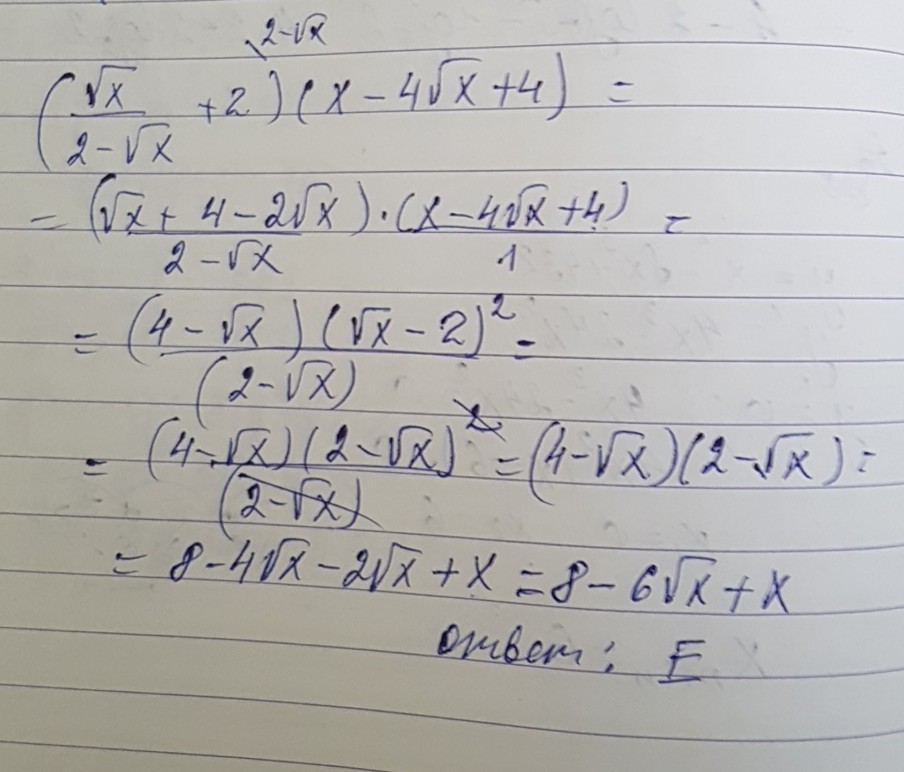 2-√x
(√x/(2-√x) + 2)(x - 4√x + 4) =
= (√x + 4 - 2√x)/(2 - √x) · (x - 4√x + 4)/1 =
= (4 - √x)(√x - 2)²/(2 - √x) =
= (4-√x)(2-√x)²/(2-√x) = (4-√x)(2-√x) =
= 8 - 4√x - 2√x + x = 8 - 6√x + x
ответ: E